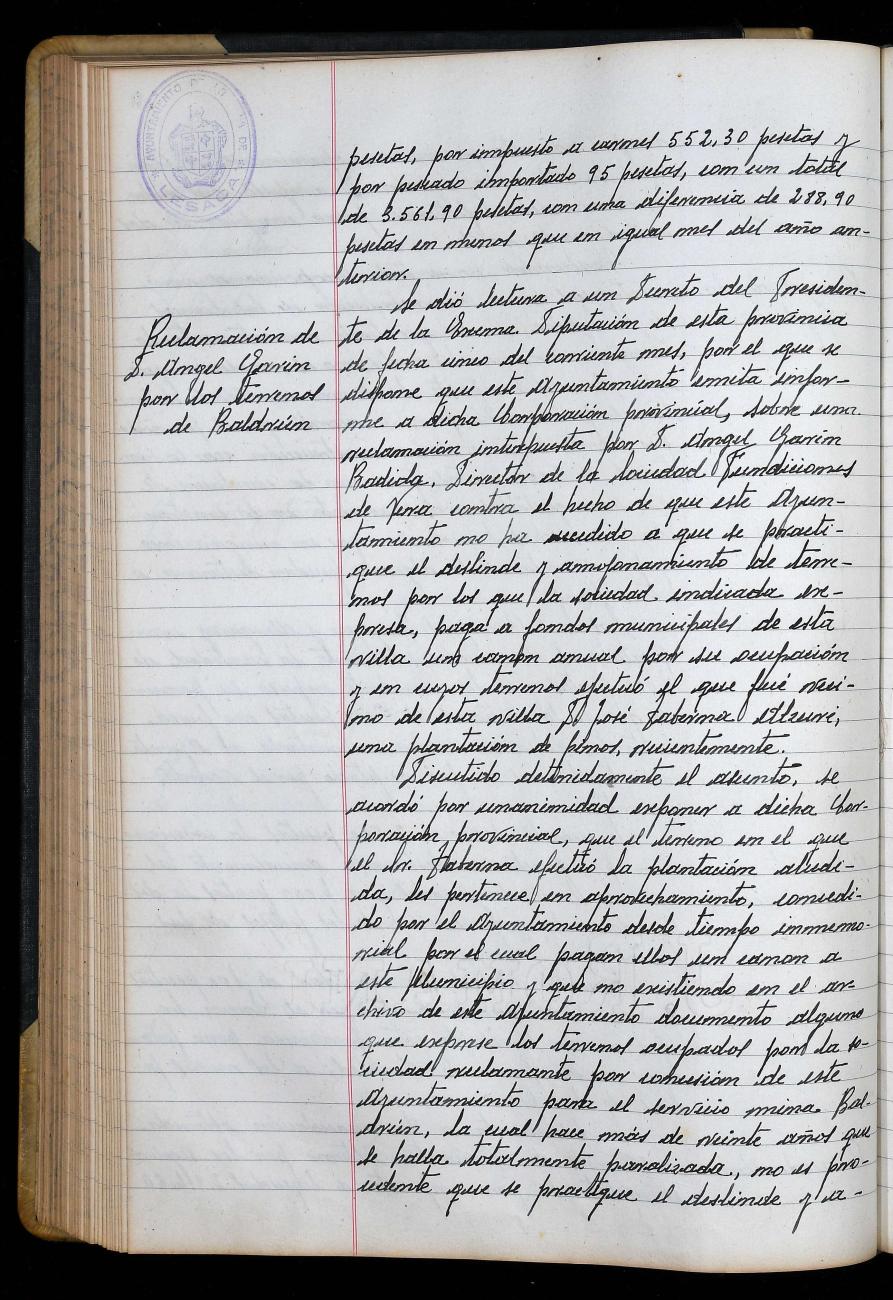 AYUNTAMIENTO DE
LESACA
pesetas, por impuesto a carnes 552,30 pesetas y
por pescado importado 95 pesetas, con un total
de 3.561,90 pesetas, con una diferencia de 288,90
pesetas en menos que en igual mes del año an-
terior.
Reclamación de
D. Angel Garin
por los terrenos
de Baldrún
Se dió lectura a un Decreto del Presiden-
te de la Excma. Diputación de esta provincia
de fecha cinco del corriente mes, por el que se
dispone que este Ayuntamiento emita infor-
me a dicha Corporación provincial, sobre una
reclamación interpuesta por D. Angel Garin
Badiola, Director de la Sociedad Fundiciones
de Vera contra el hecho de que este Ayun-
tamiento no ha accedido a que se practi-
que el deslinde y amojonamiento de terre-
nos por los que la sociedad indicada ex-
presa, paga a fondos municipales de esta
villa un canon anual por su ocupación
y en cuyos terrenos efectuó el que fué veci-
no de esta villa D. José Taberna Alzuri,
una plantación de pinos, recientemente.
Discutido detenidamente el asunto, se
acordó por unanimidad exponer a dicha Cor-
poración provincial, que el terreno en el que
el Sr. Taberna efectuó la plantación aludi-
da, les pertenece en aprovechamiento, concedi-
do por el Ayuntamiento desde tiempo inmemo-
rial por el cual pagan ellos un canon a
este Municipio y que no existiendo en el ar-
chivo de este Ayuntamiento documento alguno
que exprese los terrenos ocupados por la so-
ciedad reclamante por concesión de este
Ayuntamiento para el servicio mina Bal-
drún, la cual hace más de veinte años que
se halla totalmente paralizada, no es pro-
cedente que se practique el deslinde y a-